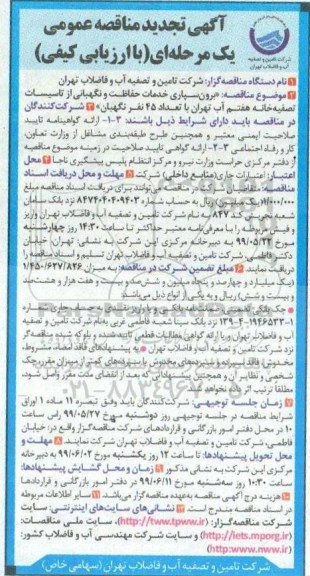 شرکت تامین و تصفیه
آب و فاضلاب تهران
آگهی تجدید مناقصه عمومی
یک مرحله‌ای(با ارزیابی کیفی)
۱ نام دستگاه مناقصه‌گزار: شرکت تامین و تصفیه آب و فاضلاب تهران
۲ موضوع مناقصه: «برون‌سپاری خدمات حفاظت و نگهبانی از تاسیسات
تصفیه‌خانه هفتم آب تهران با تعداد ۴۵ نفر نگهبان» ۳ شرکت‌کنندگان
در مناقصه باید دارای شرایط ذیل باشند: ۱-۳ ارائه گواهینامه تایید
صلاحیت ایمنی معتبر و همچنین طرح طبقه‌بندی مشاغل از وزارت تعاون
کار و رفاه اجتماعی ۲-۳ ارائه گواهی تایید صلاحیت در زمینه موضوع مناقصه
از دفتر مرکزی حراست وزارت نیرو و مرکز انتظام پلیس پیشگیری ناجا ۴ محل
اعتبار: اعتبارات جاری(منابع داخلی) شرکت ۵ مهلت و محل دریافت اسناد
مناقصه: متقاضیان شرکت در مناقصه می‌توانند برای دریافت اسناد مناقصه مبلغ
۱/۰۰۰/۰۰۰ ریال به حساب شماره ۸۴۷۴۰۴۰۲۰۹۴۰۳ نزد بانک
کد ۸۴۷ به نام شرکت تامین و تصفیه آب و فاضلاب تهران واریز
و فیش مربوطه را با معرفی‌نامه معتبر حداکثر تا ساعت ۱۴:۳۰ روز چهارشنبه
مورخ ۹۹/۰۵/۲۲ به دبیرخانه مرکزی این شرکت به نشانی: تهران خیابان
دکتر فاطمی، شرکت تامین و تصفیه آب و فاضلاب تهران تسلیم و اسناد مناقصه را
دریافت نمایند. ۶ مبلغ تضمین شرکت در مناقصه: به میزان ۱/۴۵۰/۶۳۷/۸۲۶
(یک میلیارد و چهارصد و پنجاه میلیون و ششصد و سی و هفت هزار و هشتصد
و بیست و شش) ریال و به یکی از انواع ذیل می‌باشد
نزد بانک سینا شعبه فاطمی غربی به‌نام شرکت تامین و تصفیه
نزد شرکت تامین و تصفیه آب و فاضلاب تهران به پیشنهادهای فاقد امضاء، مشروط،
مطلقا ترتیب اثر داده نخواهد شد.
۷ زمان جلسه توجیهی: شرکت‌کنندگان باید وفق تبصره ۱۱ ماده ۱ اوراق
شرایط مناقصه در جلسه توجیهی روز دوشنبه مورخ ۹۹/۰۵/۲۷ راس ساعت
۱۰ در محل دفتر امور بازرگانی و قراردادهای شرکت مناقصه‌گزار واقع در: خیابان
فاطمی، شرکت تامین و تصفیه آب و فاضلاب تهران شرکت نمایند. ۸ مهلت و
محل تحویل پیشنهادها: تا ساعت ۱۲ روز یکشنبه مورخ ۹۹/۰۶/۰۲ به دبیرخانه
مرکزی این شرکت به نشانی مذکور ۹ زمان و محل گشایش پیشنهادها:
ساعت ۱۰:۳۰ روز سه‌شنبه مورخ ۹۹/۰۶/۱۱ در دفتر امور بازرگانی و قراردادها
۱۰ هزینه درج آگهی مناقصه به‌عهده مناقصه گزار می‌باشد. ۱۱ سایر اطلاعات مربوطه
در اسناد مناقصه مندرج است. ۱۲ نشانی‌های سایت‌های اینترنتی: سایت
شرکت مناقصه‌گزار: (http://tww.tpww.ir)، سایت ملی مناقصات:
(http://iets.mporg.ir) و سایت شرکت مهندسی آب و فاضلاب کشور:
(http:www.nww.ir)
شرکت تامین و تصفیه آب و فاضلاب تهران (سهامی خاص)